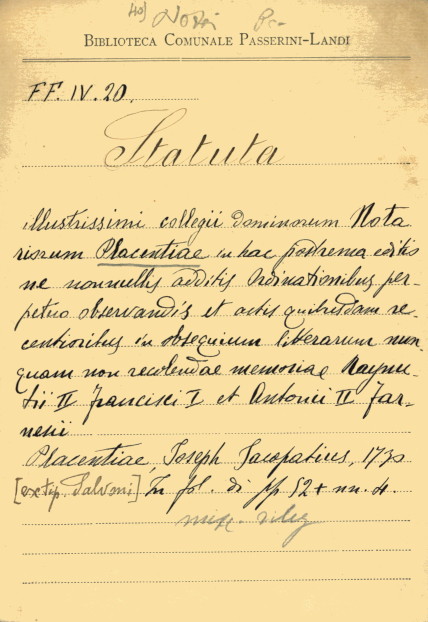 40) Notai Pc.
BIBLIOTECA COMUNALE PASSERINI-LANDI
FF. IV. 20.
Statuta
illustrissimi collegii dominorum Nota
riorum Placentiae in hac postrema editio
ne nonnullis additis Ordinationibus per-
petuo observandis et actis quibusdam re-
centioribus in obsequium litterarum nun-
quam non recolendae memoriae Raynu-
tii II Francisci I et Antonii II Far-
nesii
Placentiae, Joseph Jacopatius, 1730
[ex typ. Salvoni] In fol. di pp 52 + nn. 4.